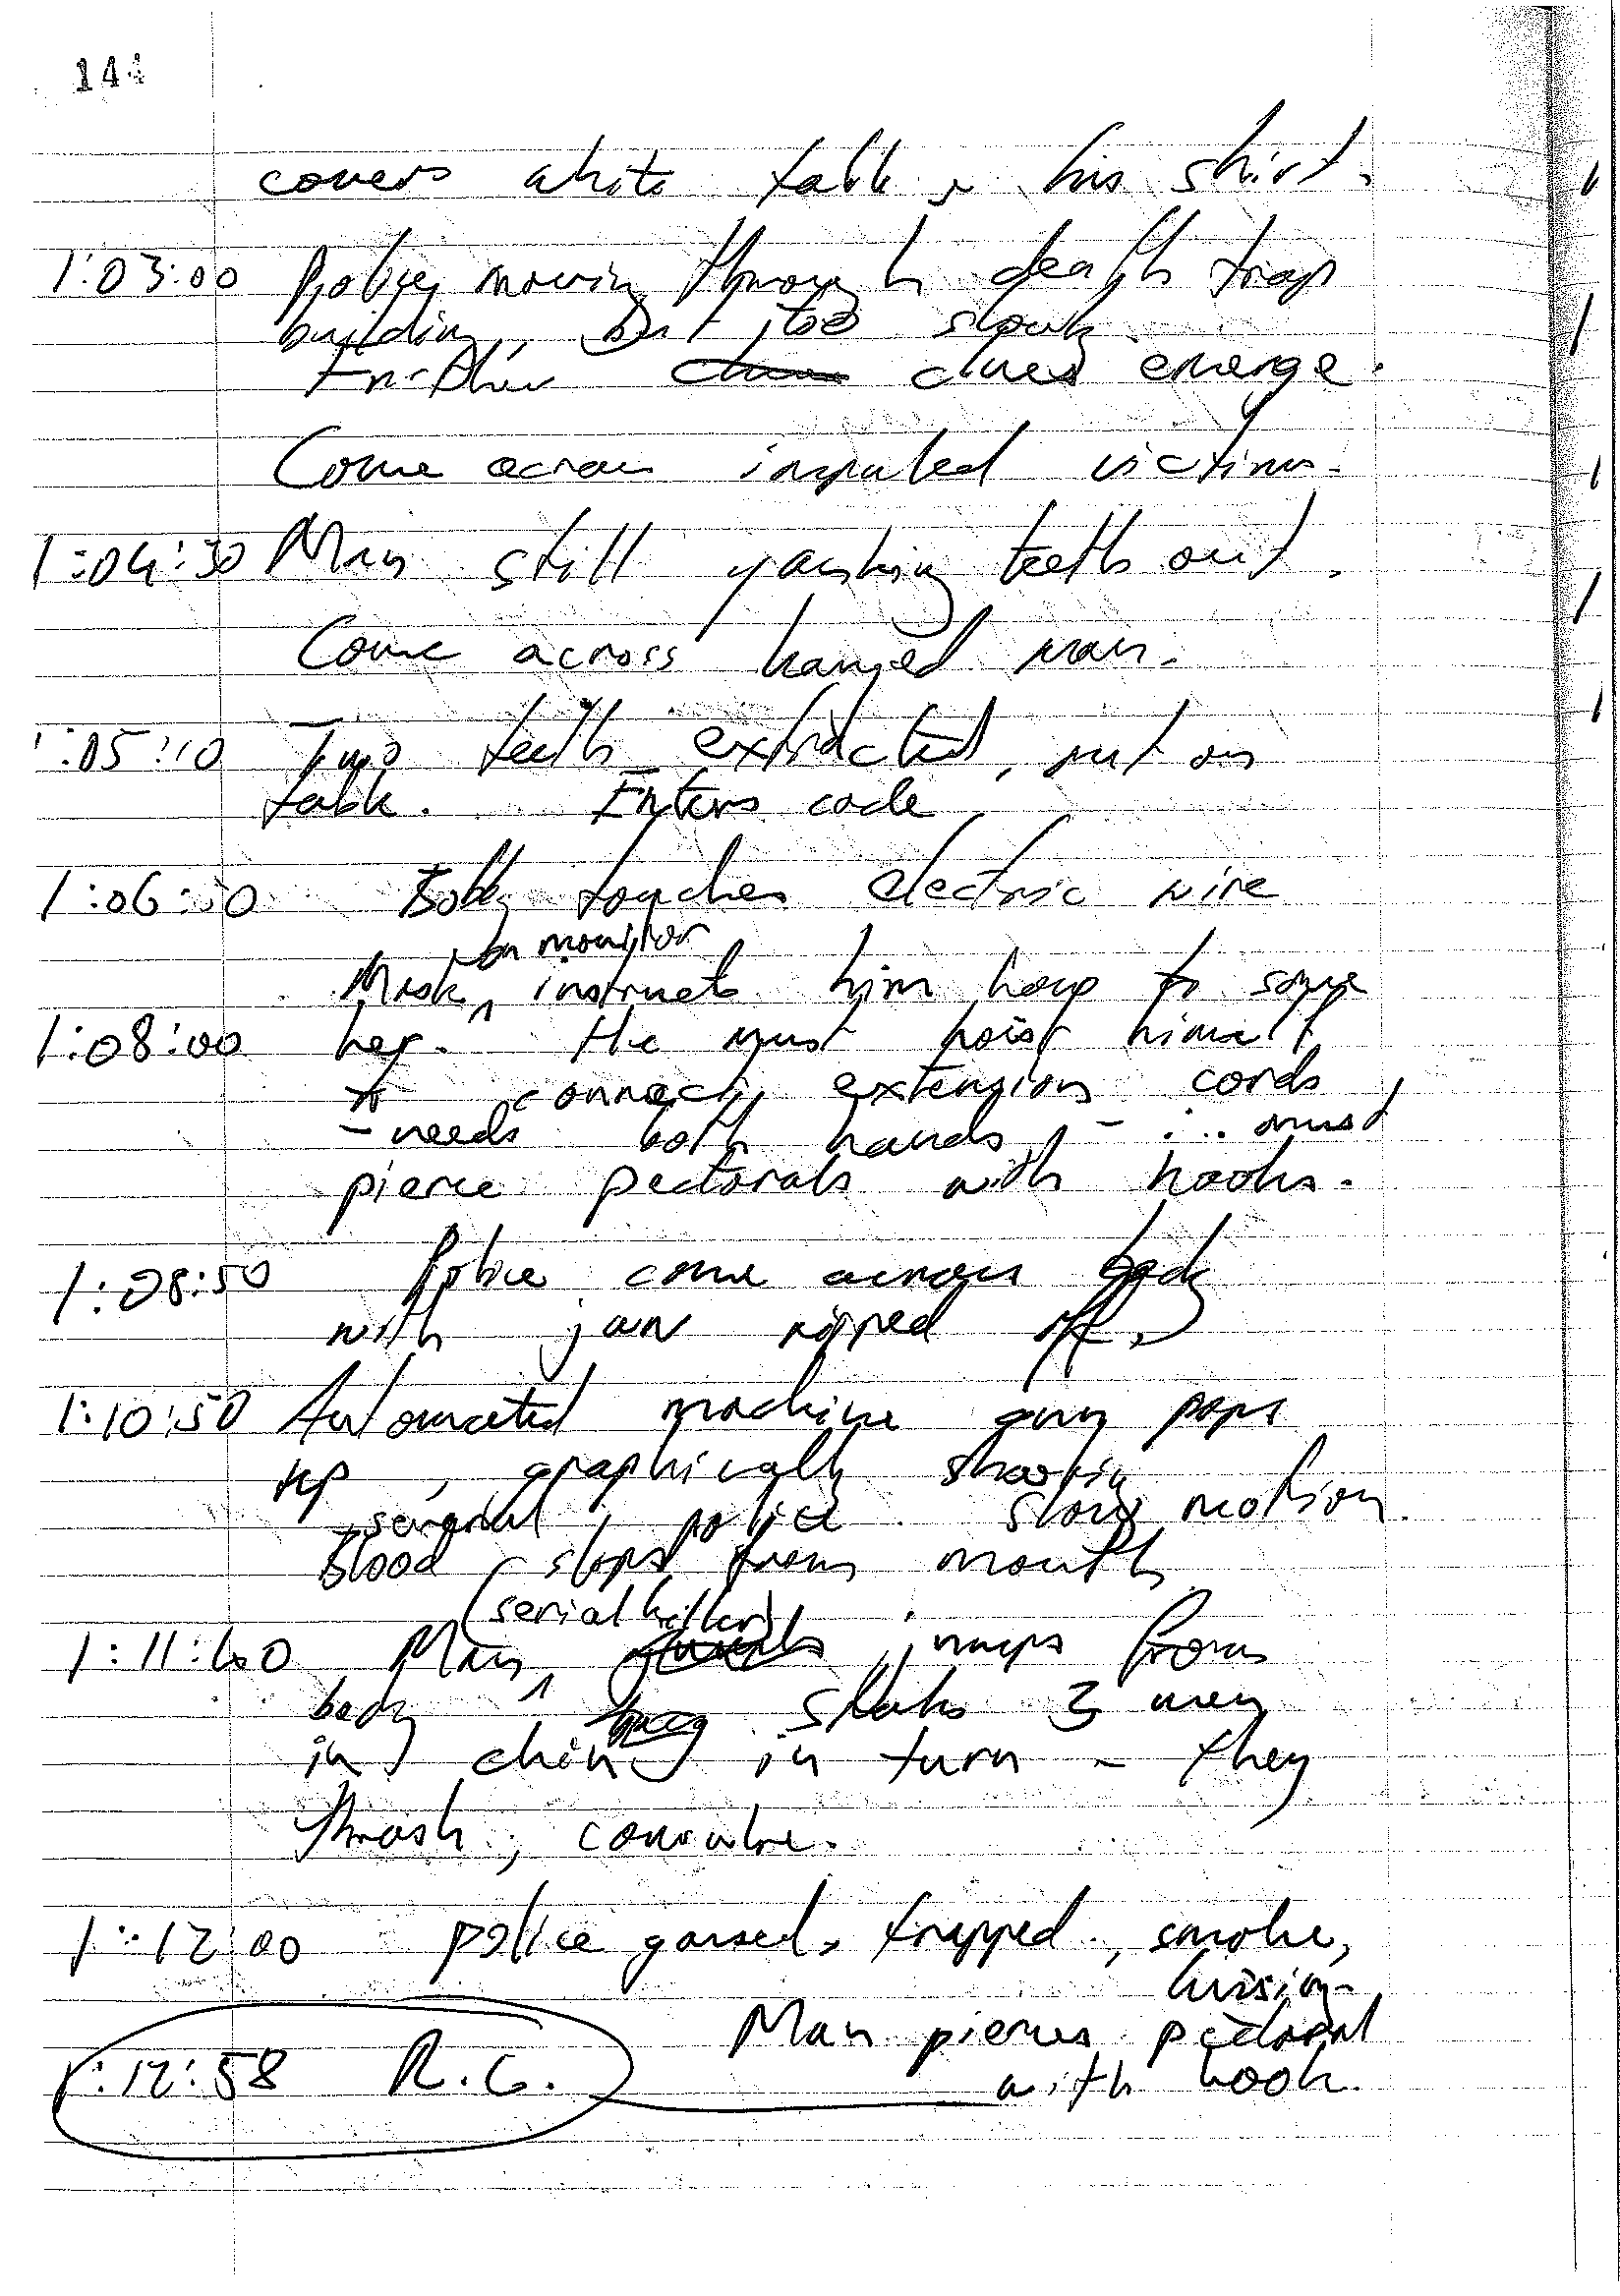 144
covers white table & his shirt.
1:03:00 Police moving through death trap
building, but too slowly.
Further clues emerge.
Come across impaled victims.
1:04:30 Man still yanking teeth out.
Come across hanged man.
1:05:10 Two teeth extracted, put on
table. Enters code
1:06:50 Bobby touches electric wire
on monitor
Mask instructs him how to save
1:08:00 her. He must hoist himself
to connect extension cords
- needs both hands, - ∴ must
pierce pectorals with hooks.
1:08:50 Police come across body
with jaw ripped off.
1:10:50 Automated machine gun pops
up, graphically shooting
several police. Slow motion.
Blood slops from mouth
(serial killer)
1:11:40 Man jumps from
body stabs 3 men
in chin in turn - they
thrash, convulse.
1:12:00 police gassed, trapped, smoke,
hissing.
Man pierces pectoral
1:12:58 R.C. with hook.